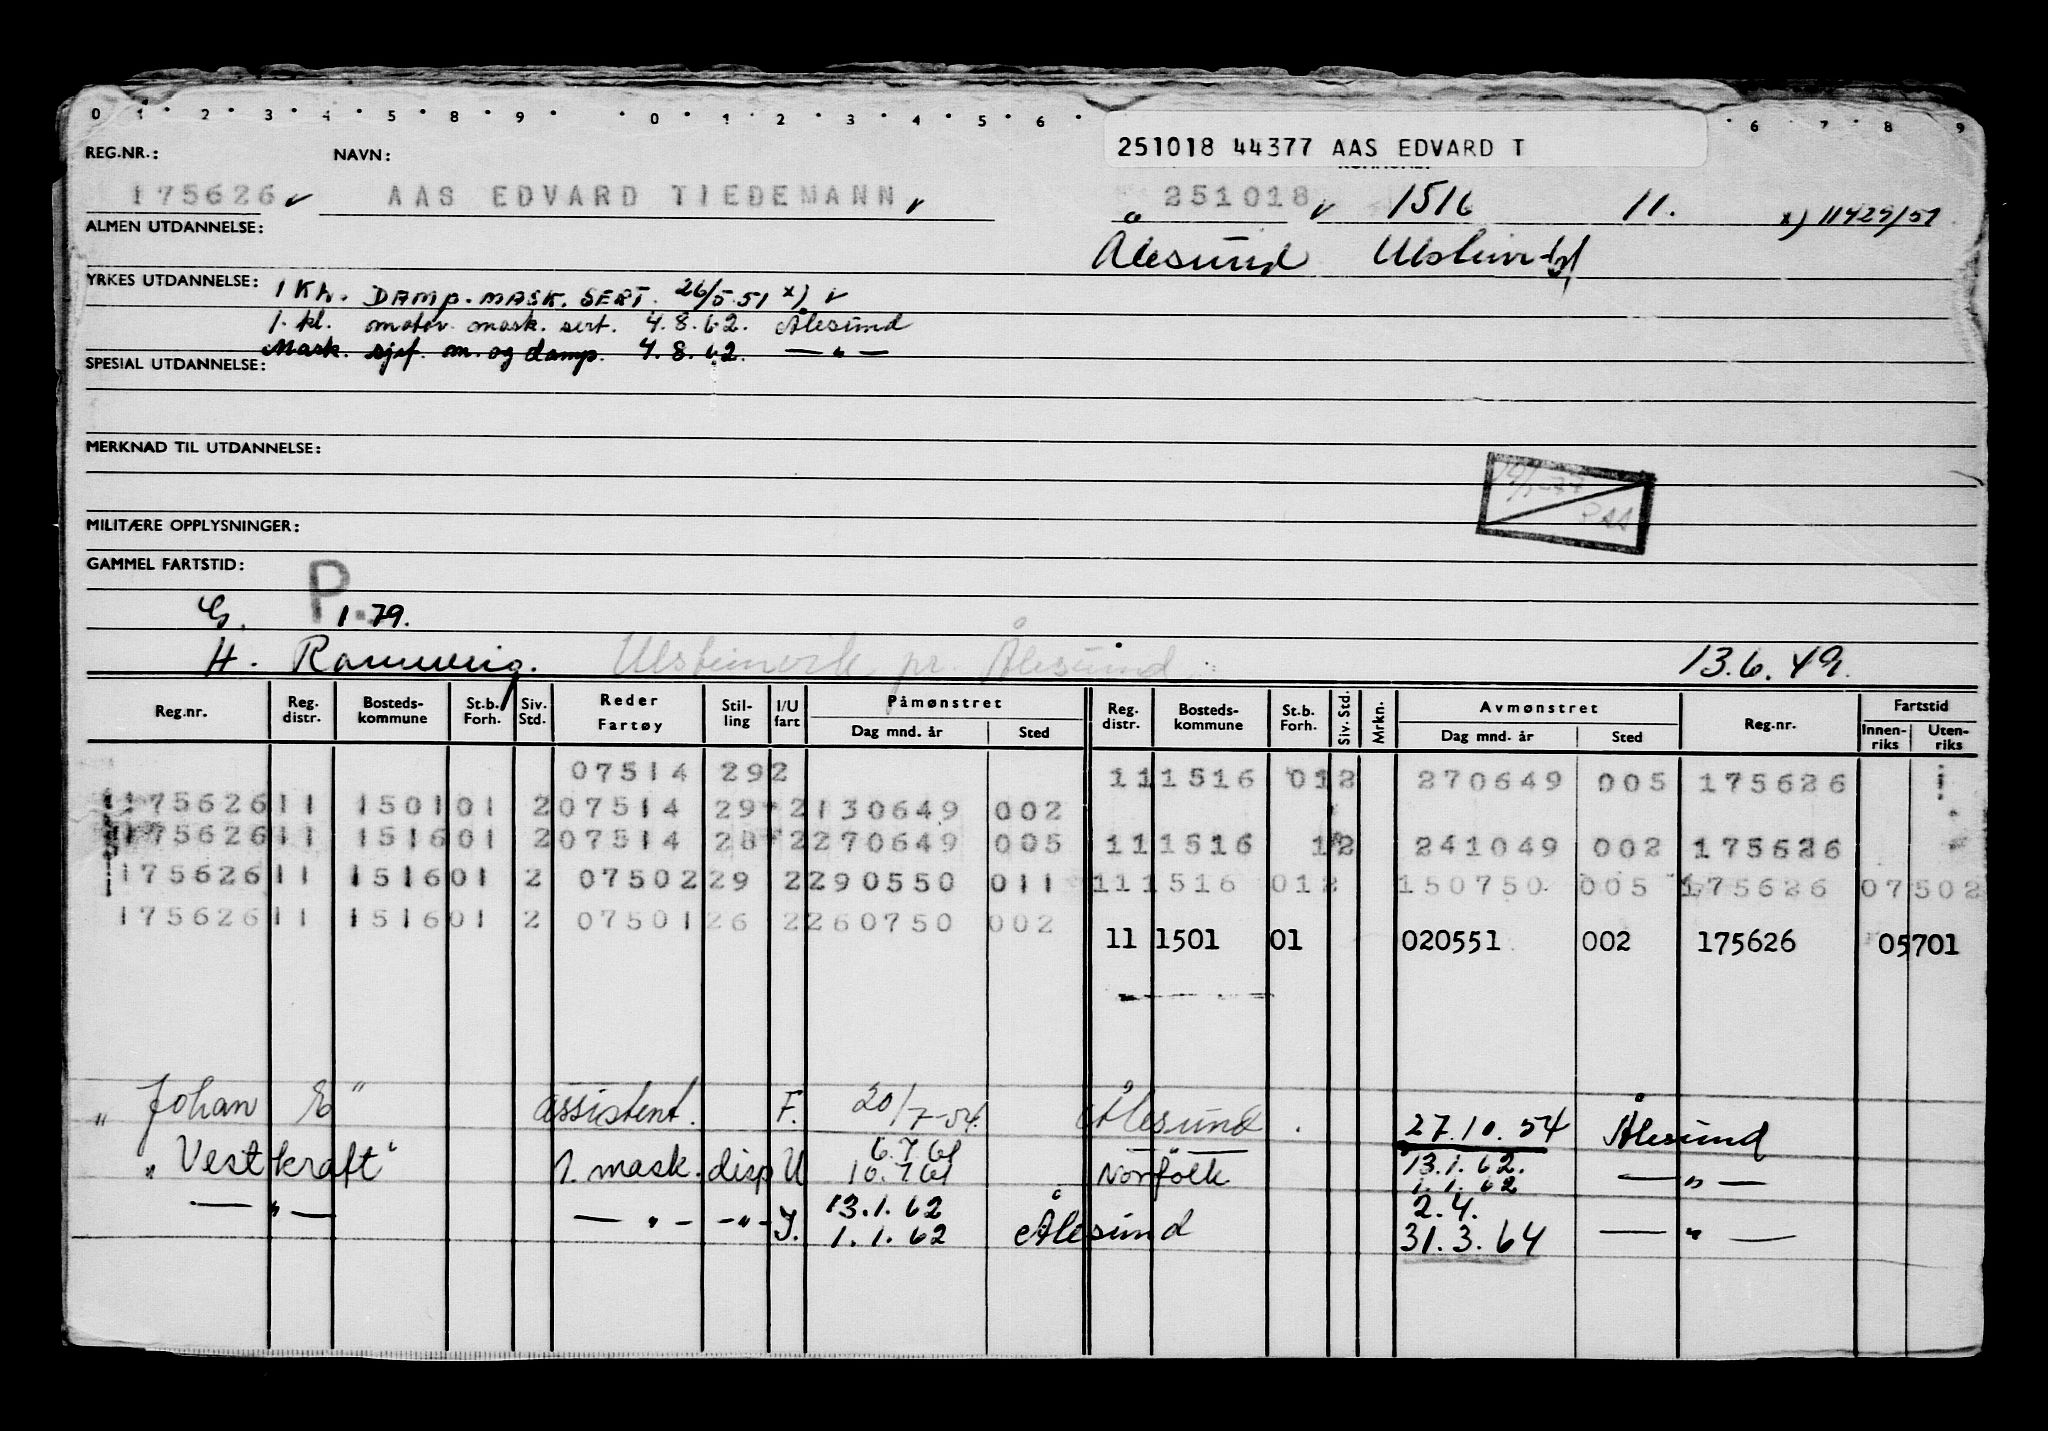 0 1 2 3 4 5 8 9 0 1 2 3 4 5 6 6 7 8 9
REG.NR.: NAVN: 251018 44377 AAS EDVARD T
175626 ✓ AAS EDVARD TIEDEMANN ✓ 251018 ✓ 1516 11. x) 11429/51
ALMEN UTDANNELSE: Ålesund
YRKES UTDANNELSE: 1 Kl. DAMP.MASK. SERT. 26/5.51 x) ✓
1. kl. motor. mask. sert. 4.8.62. Ålesund
Mask. sjef. m. og damp. 4.8.62. — " —
SPESIAL UTDANNELSE:
MERKNAD TIL UTDANNELSE:
MILITÆRE OPPLYSNINGER:
GAMMEL FARTSTID:
P
G. 1.79.
H. Ulsteinvik pr. Ålesund 13.6.49.
Reg.nr. Reg. distr. Bosteds- kommune St.b. Forh. Siv. Std. Reder Fartøy Stil- ling I/U fart Påmønstret Dag mnd. år Sted Reg. distr. Bosteds- kommune St.b. Forh. Siv. Std. Mrkn. Avmønstret Dag mnd. år Sted Reg.nr. Fartstid Innen- riks Uten- riks
07514 292 11 1516 01 2 270649 005 175626
175626 11 1501 01 2 07514 29 2 130649 002
175626 11 1516 01 2 07514 28 2 270649 005 11 1516 1 2 241049 002 175626
175626 11 1516 01 2 07502 29 2 290550 011 11 1516 01 2 150750 005 175626 07502
175626 11 1516 01 2 07501 26 2 260750 002
11 1501 01 020551 002 175626 05701
" Johan E " assistent. F. 20/7-54. Ålesund. 27.10.54 Ålesund
6.7.61
" Vestkraft " 1. mask. disp U 10.7.61 Norfolk 13.1.62. — " —
1.1.62
— " — — " — -"- I. 13.1.62 2.4.
1.1.62 Ålesund 31.3.64 — " —